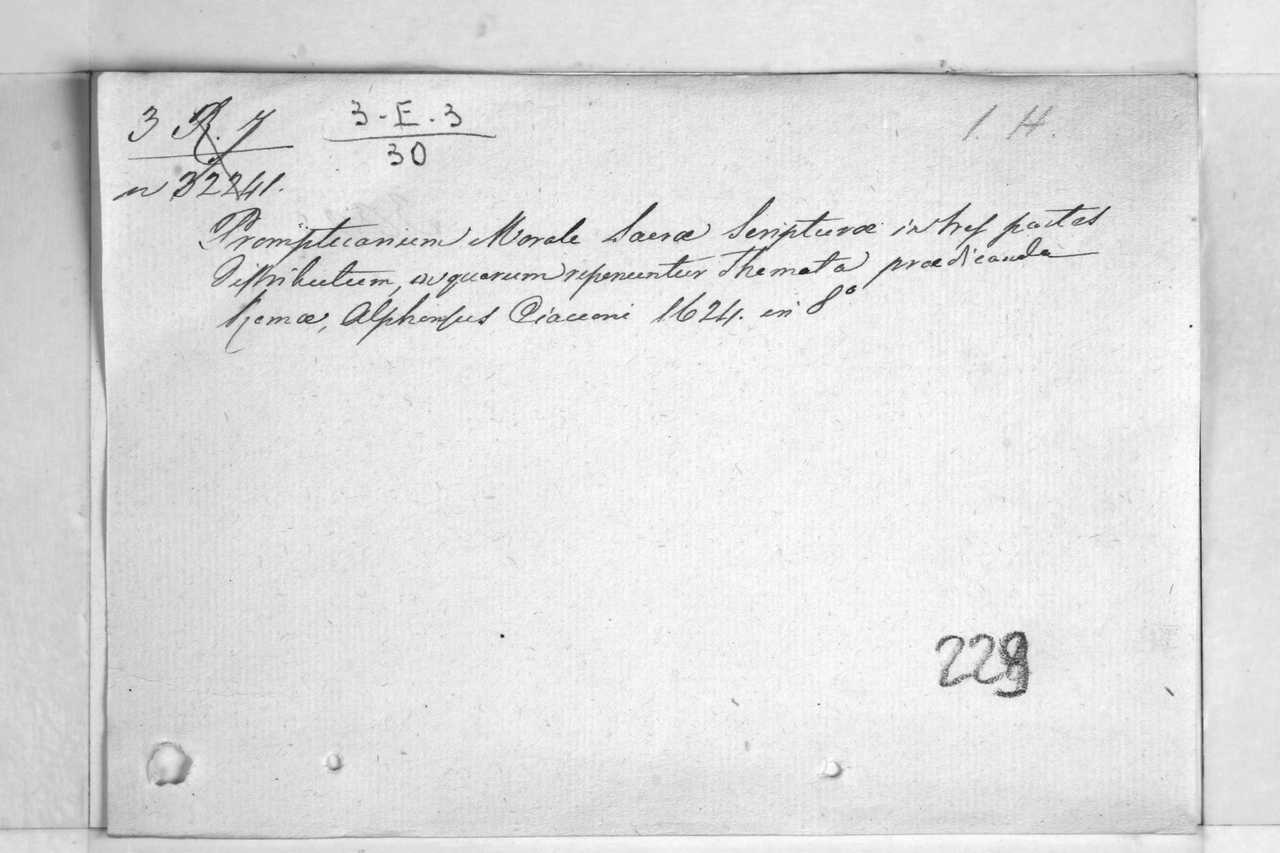 3 R. 7
3-E.3
1. H.
30
n 32241.
Promptuarium Morale Sacræ Scripturæ in tres partes
distributum, in quarum reperiuntur Themata prædicanda
Romæ, Alphonsus Ciacconi 1624. in 8°
229